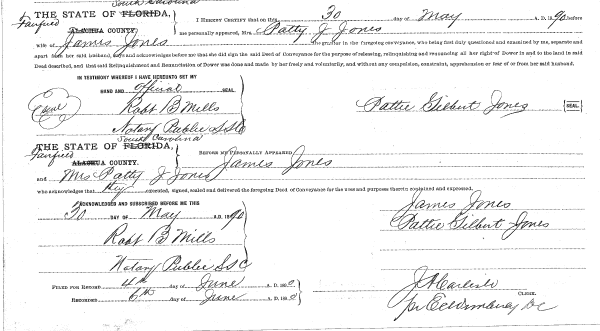 South Carolina
THE STATE OF FLORIDA,
Fairfield
ALACHUA COUNTY.
I HEREBY CERTIFY that on this 30 day of May A. D. 1890, before
me personally appeared, Mrs. Patty J Jones
wife of James Jones the grantor in the foregoing conveyance, who being first duly questioned and examined by me, separate and
apart from her said husband, did say and acknowledge before me that she did sign the said Deed of Conveyance for the purpose of releasing, relinquishing and renouncing all her right of Dower in and to the land in said
Deed described, and that said Relinquishment and Renunciation of Dower was done and made by her freely and voluntarily, and without any compulsion, constraint, apprehension or fear of or from her said husband.
IN TESTIMONY WHEREOF I HAVE HEREUNTO SET MY
HAND AND official SEAL
Robt B Mills
Notary Public S.C.
Pattie Gilbert Jones SEAL
South Carolina
THE STATE OF FLORIDA,
Fairfield
ALACHUA COUNTY.
BEFORE ME PERSONALLY APPEARED James Jones
and Mrs Patty J Jones
who acknowledge that they executed, signed, sealed and delivered the foregoing Deed of Conveyance for the uses and purposes therein contained and expressed.
ACKNOWLEDGED AND SUBSCRIBED BEFORE ME THIS
30 DAY OF May A. D. 1890
Robt B Mills
Notary Public S.C.
James Jones
Pattie Gilbert Jones
FILED FOR RECORD 4th day of June A. D. 1890
RECORDED 6th day of June A. D. 1890
J A Carlisle CLERK.
DC